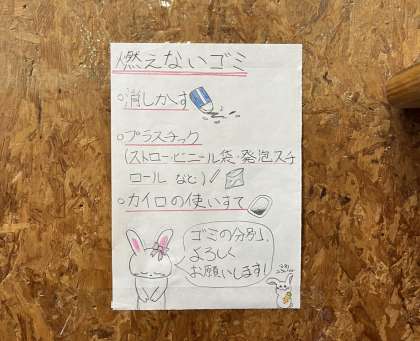 燃えないゴミ
○消しかす
○プラスチック
(ストロー・ビニール袋・発泡スチ
ロール など)
○カイロの使いすて
ゴミの分別、
よろしく
お願いします!